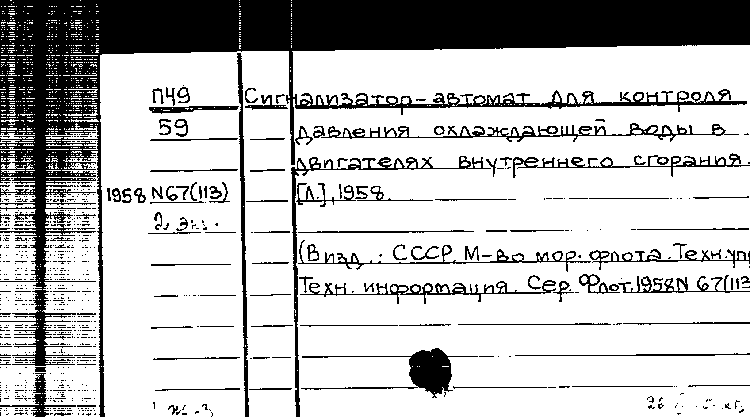 П49 Сигнализатор-автомат для контроля
59 давления охлаждающей воды в
двигателях внутреннего сгорания.
1958 N67(113) [Л.], 1958.
2 экз.
(В изд.: СССР. М-во мор. флота. Техн.уп
Техн. информация. Сер. Флот.1958N 67(113